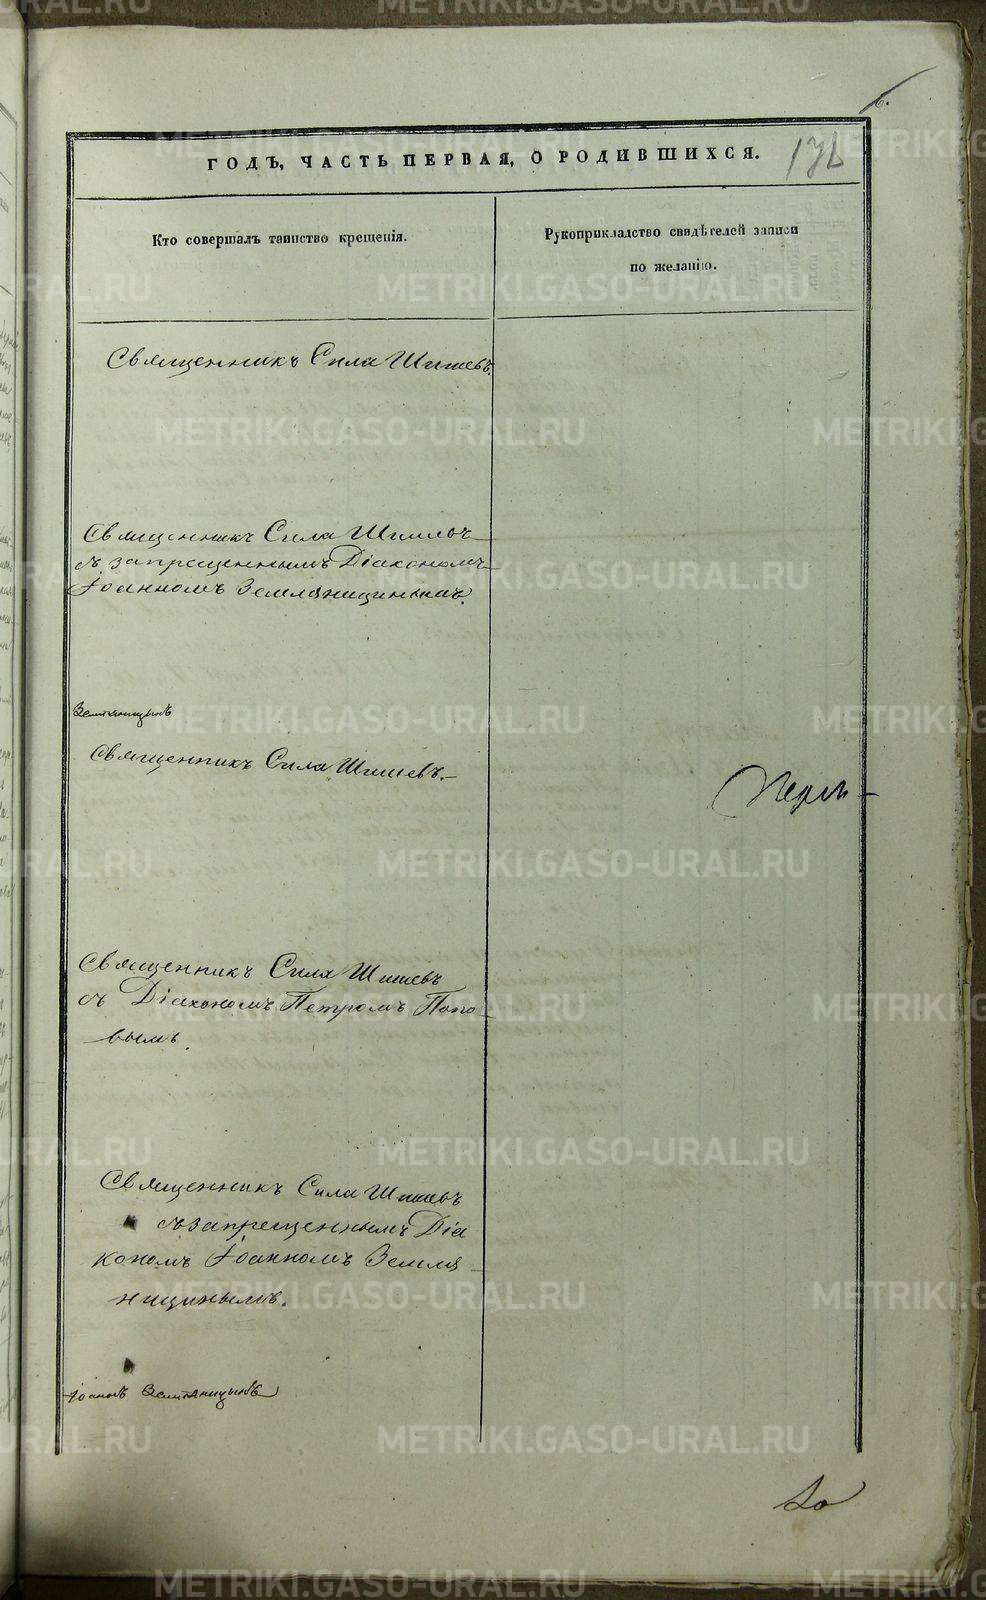 6.
ГОДЪ, ЧАСТЬ ПЕРВАЯ, О РОДИВШИХСЯ.
Кто совершалъ таинство крещенія.
Рукоприкладство свидѣтелей записи
по желанію.
Священникъ Сила Шишевъ.
Священникъ Сила Шишевъ
съ запрещеннымъ Діакономъ
Іоанномъ Земляницинымъ.
Земляницынъ
Священникъ Сила Шишевъ.
Священникъ Сила Шишевъ
съ Діакономъ Петромъ Попо-
вымъ.
Священникъ Сила Шишевъ
съ запрещеннымъ Діа
кономъ Іоанномъ Земля
ницинымъ.
Іоаннъ Земляницынъ
METRIKI.GASO-URAL.RU